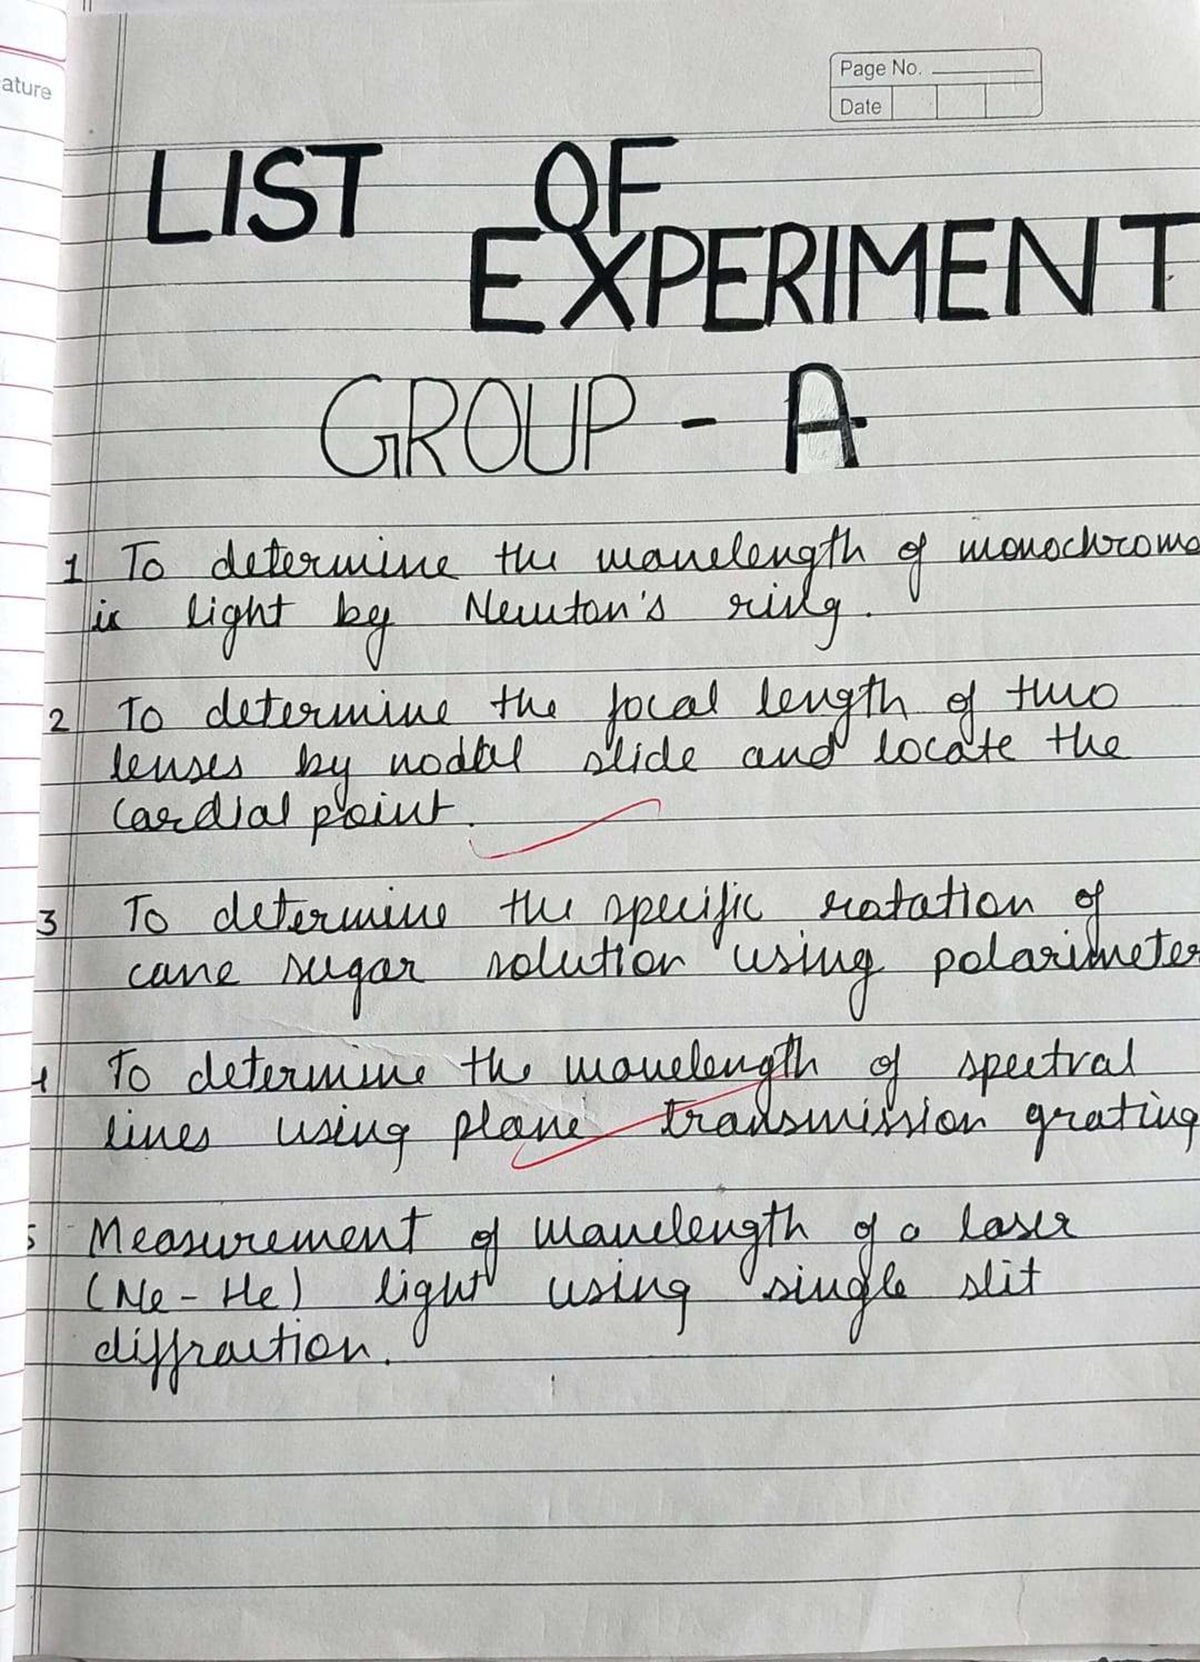 ature
Page No.
Date
LIST OF
EXPERIMENT
GROUP - A
1 To determine the wavelength of monochroma
ic light by Newton's ring.
2 To determine the focal length of two
lenses by nodal slide and locate the
cardial point.
3 To determine the specific rotation of
cane sugar solution using polarimeter
4 To determine the wavelength of spectral
lines using plane transmission grating
5 Measurement of wavelength of a laser
(Ne-He) light using single slit
diffraction.